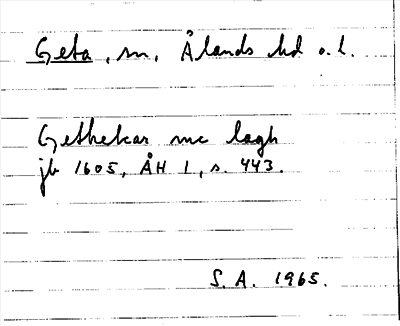 Geta, sn, Ålands hd o. l.
Gethekar mc lagh
jb 1605, ÅH 1, s. 443.
S. A. 1965.